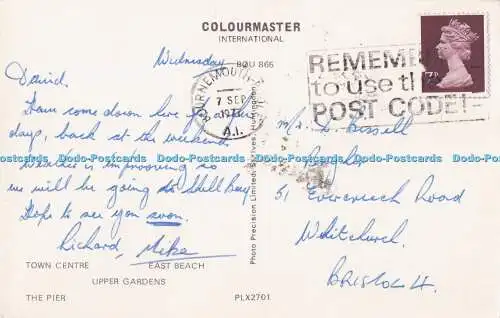 COLOURMASTER
INTERNATIONAL
BOU 865
Wednesday
David,
Have come down here for a few
days, back at the weekend.
Weather is improving so
we will be going to Shell Bay
Hope to see you soon.
Richard, Mike
TOWN CENTRE EAST BEACH
UPPER GARDENS
THE PIER PLX2701
Photo Precision Limited
Huntingdon
BOURNEMOUTH
7 SEP
A.I.
REMEMBER
to use the
POST CODE!
7P
Mr. D. Russell
51 Evercreech Road
Whitchurch,
BRISTOL 4.
Dodo-Postcards Dodo-Postcards Dodo-Postcards Dodo-Postcards Dodo-Postcards